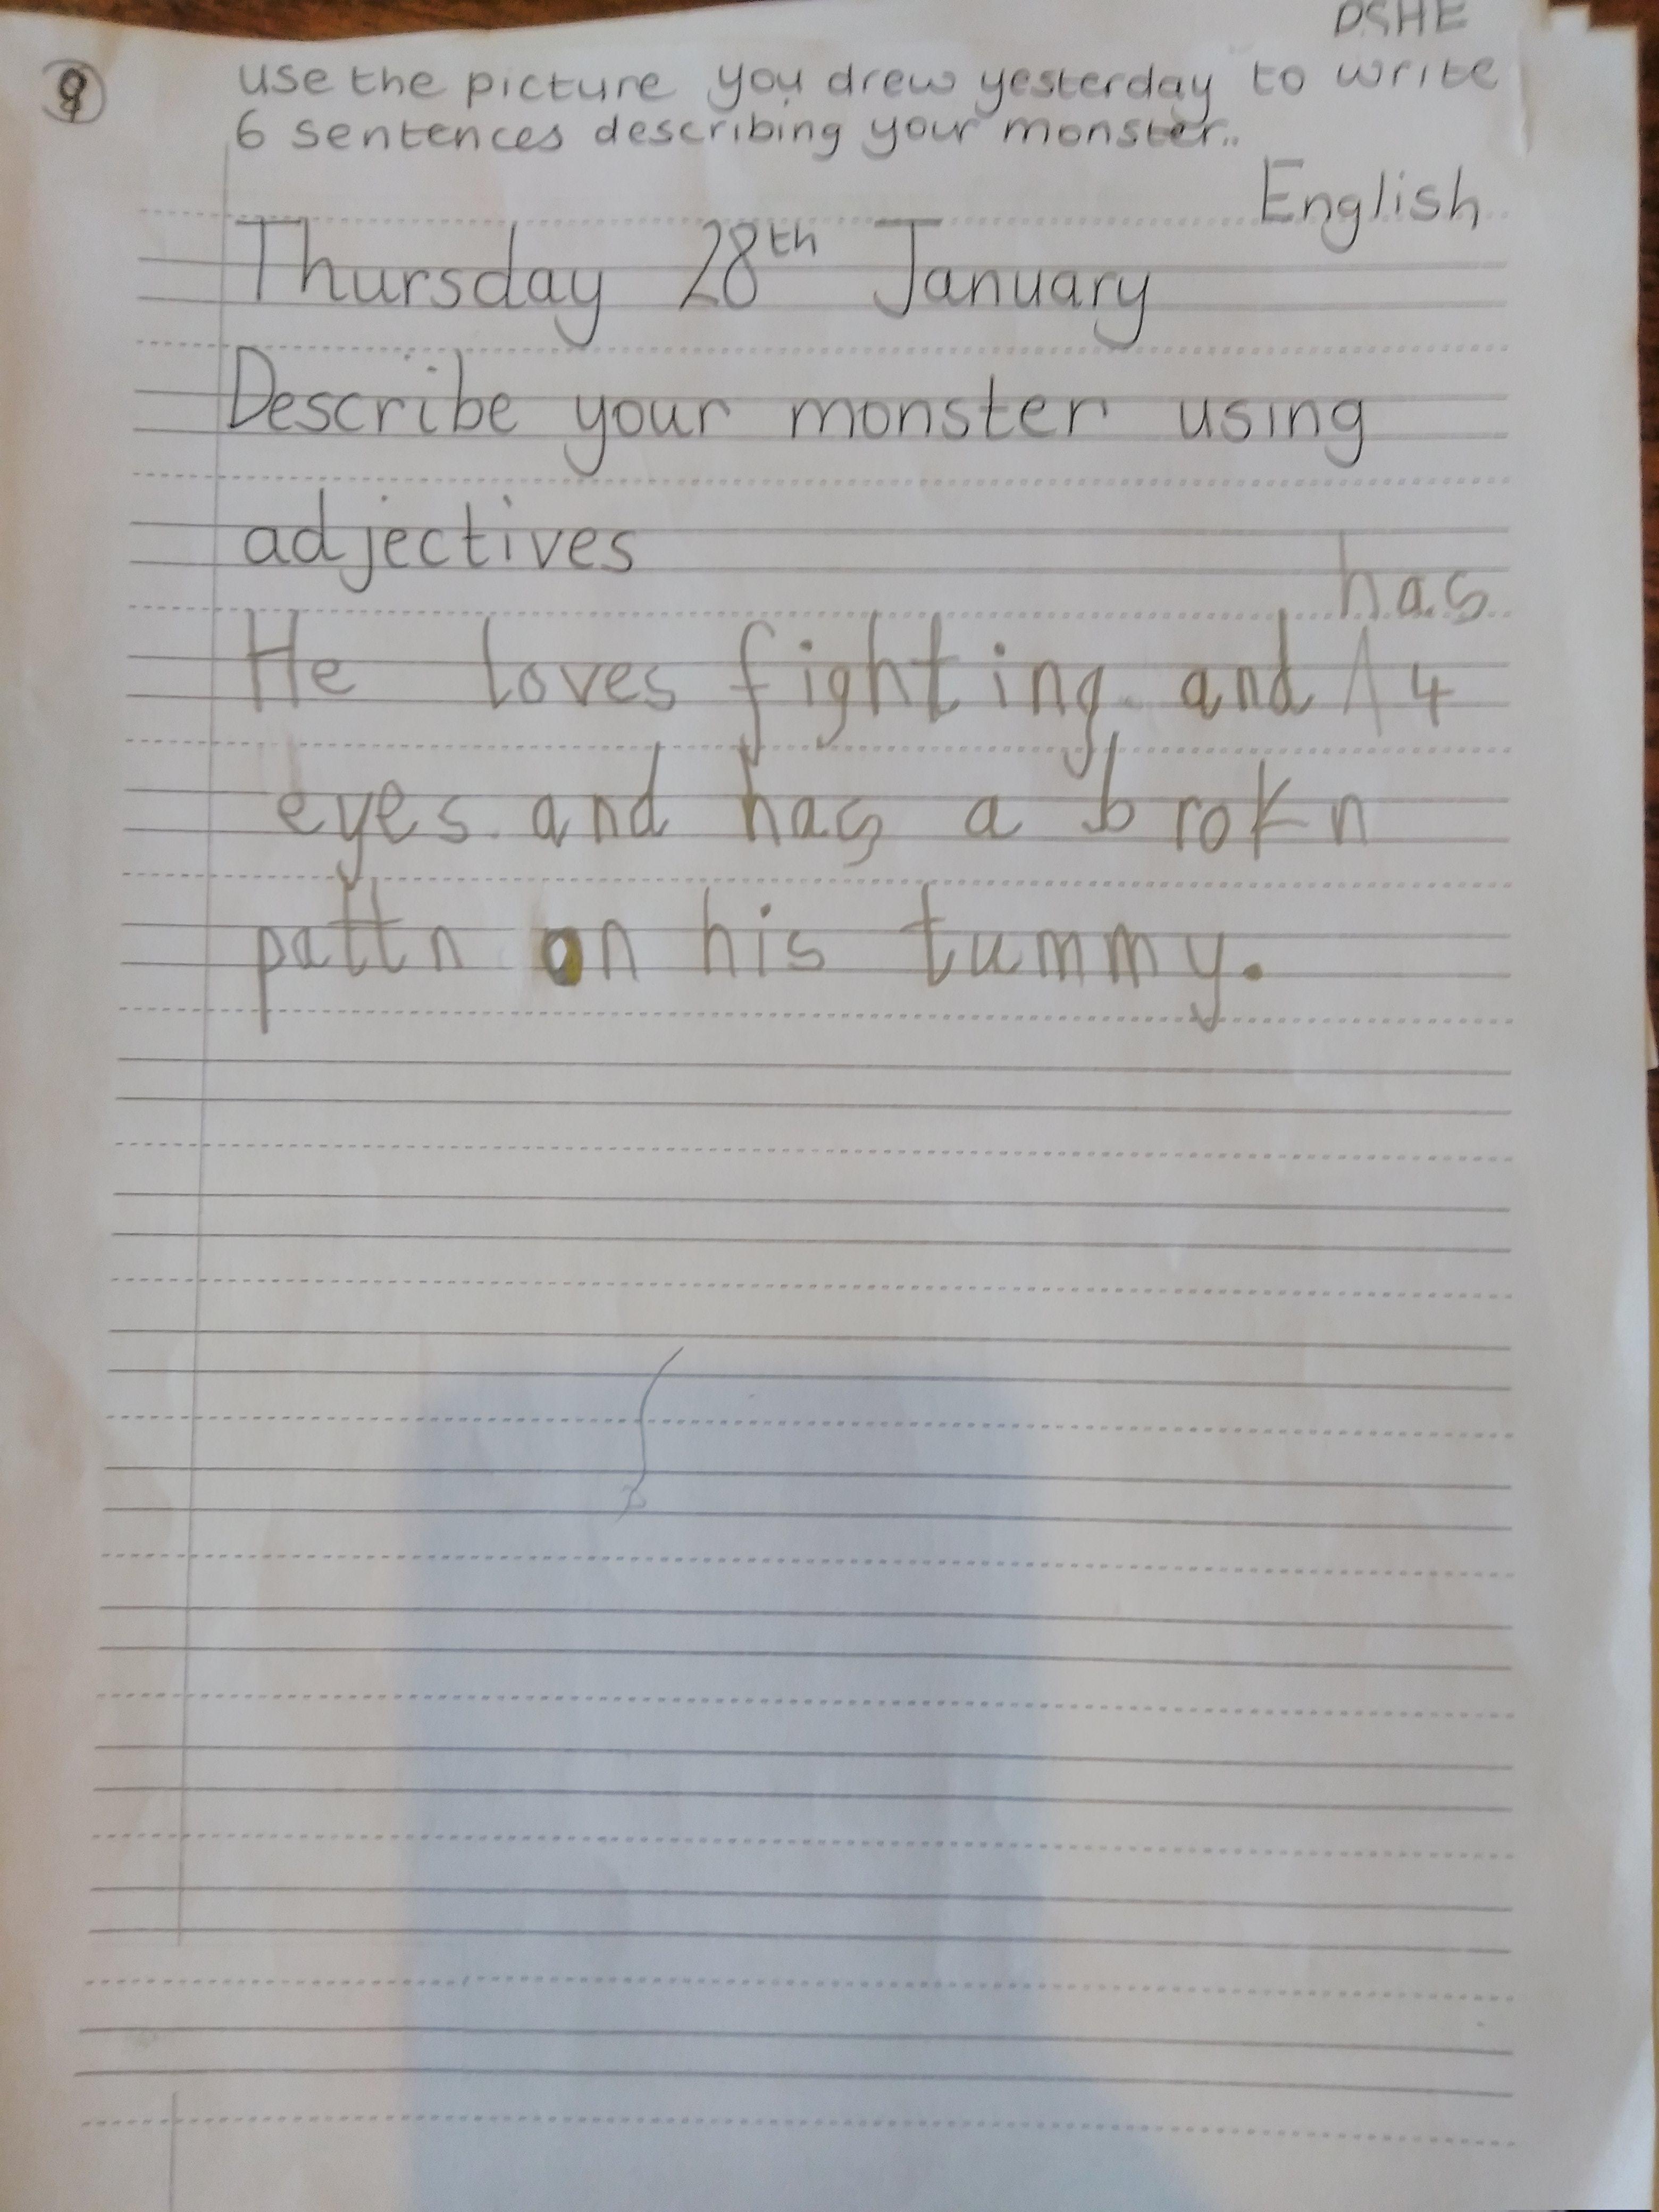 PSHE
use the picture you drew yesterday to write
6 sentences describing your monster..
English
Thursday 28th January
Describe your monster using
adjectives
has
He loves fighting and 4
eyes and has a brokn
pattn on his tummy.